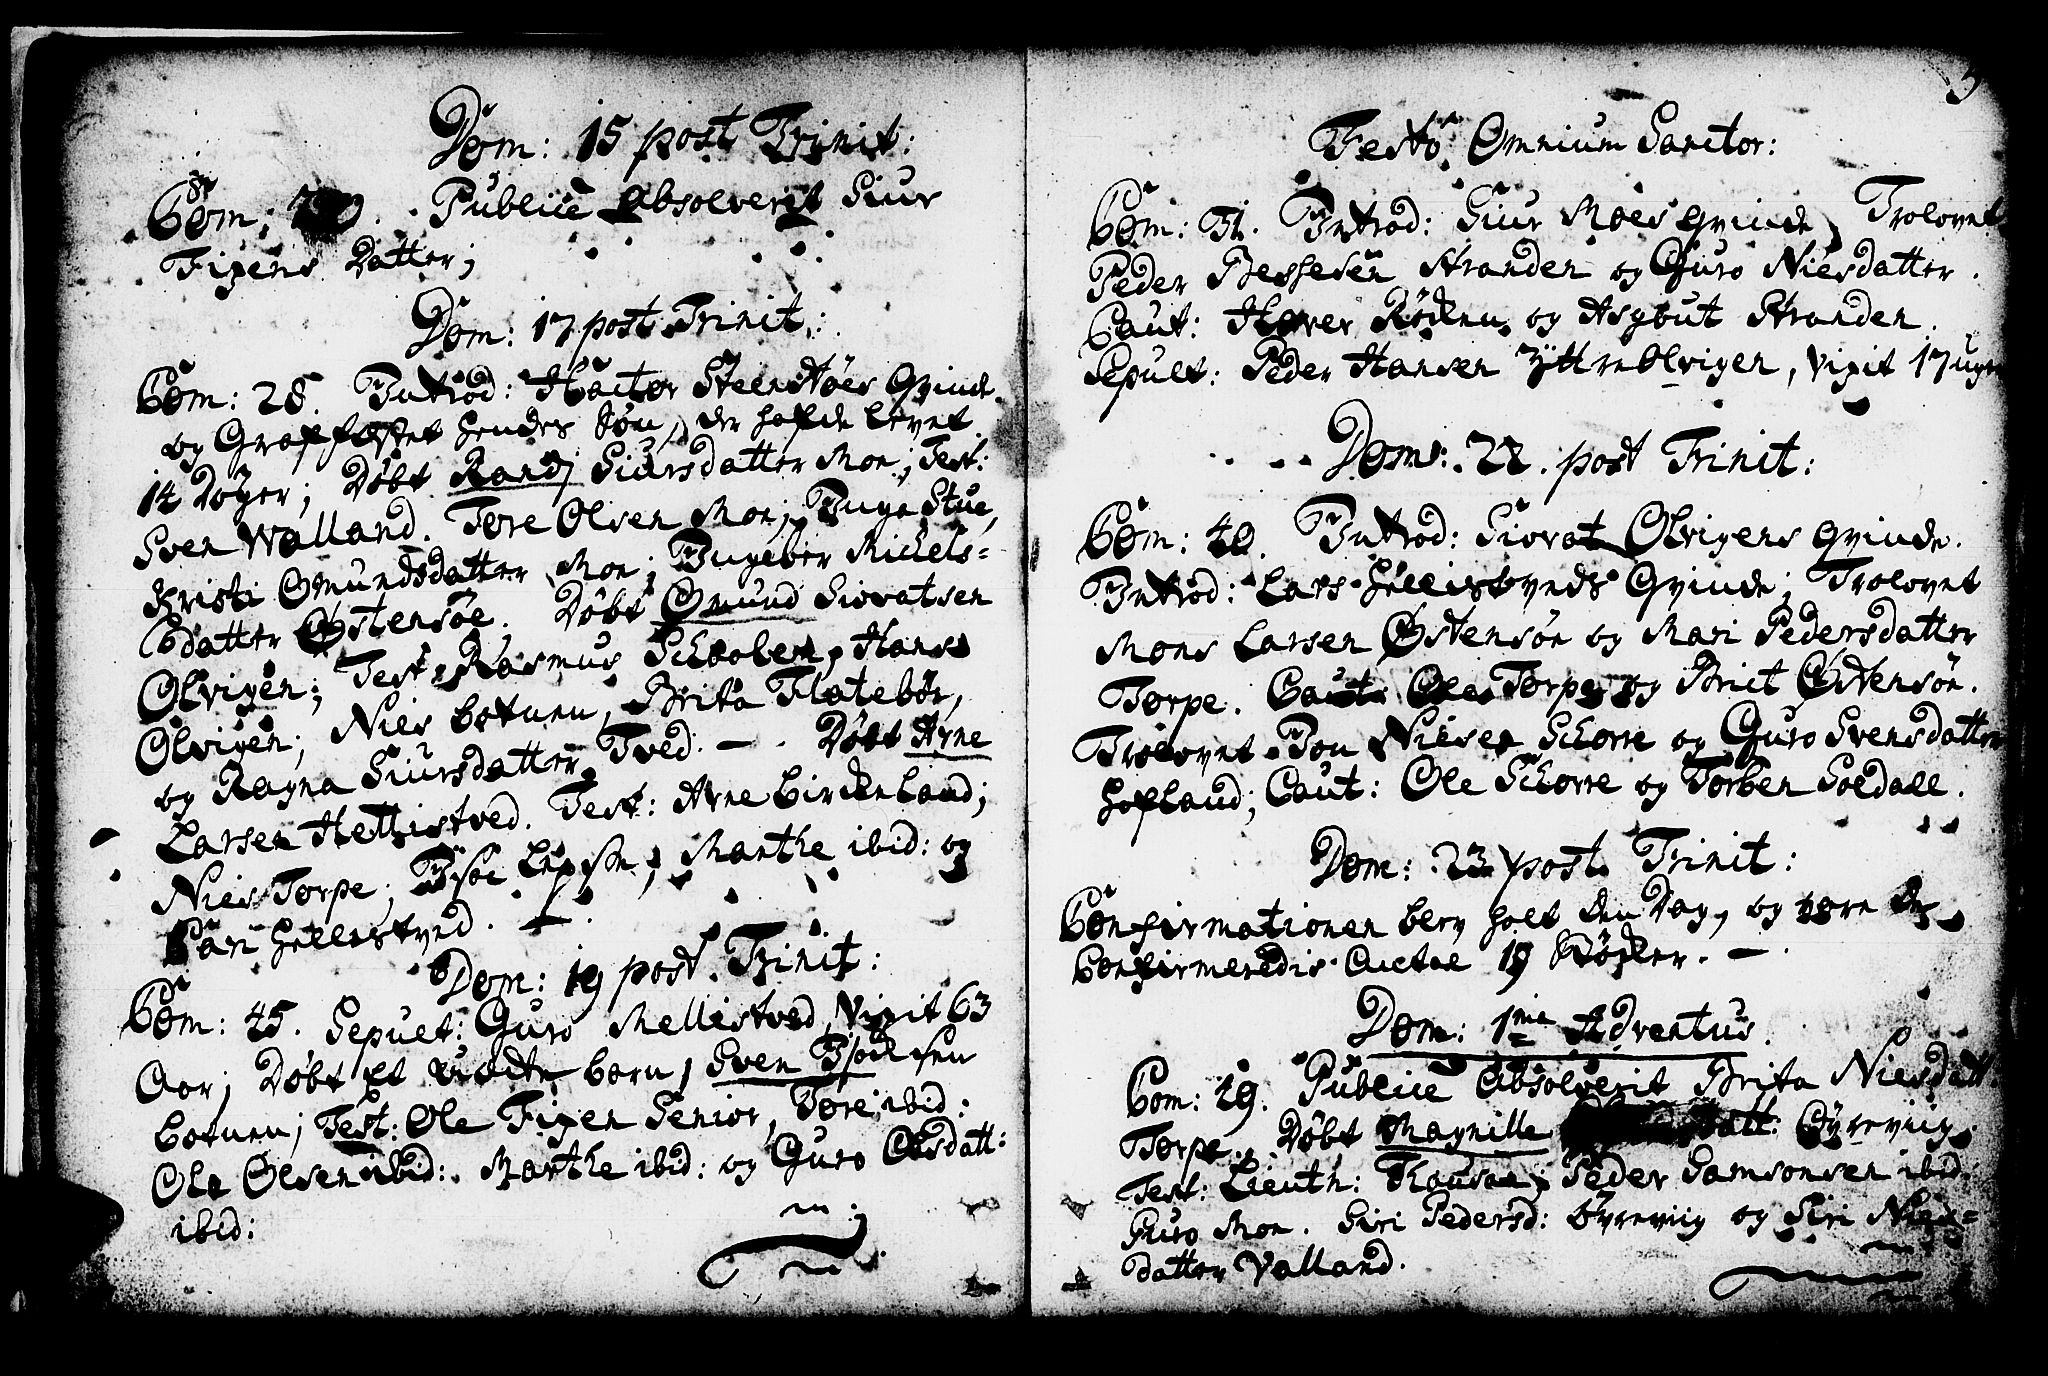 Dom: 15 post Trinit:
Com: Publicè absolverit Siur
Fixens Datter;
Dom: 17 post Trinit:
Com: 28. Introd: Hactor Steenstøes Qvinde
og Graffæstet hendes Søn, der hafde levet
14 Dager; Døbt Randj Siursdatter Moe; Test:
Sven Walland. Tore Olsen Moe; Inga Stue,
Kristi Omundsdatter Moe; Ingebor Michels-
datter Østensøe. Døbt Omund Siovatsen
Olvigen; Test: Rasmus Hans
Olvigen; Niels Botnen, Brita Flatebøe,
og Ragna Siursdatter Tved. — . Døbt Arne
Larsen Hellistved. Test: Arne Birkenland;
Niels Torpe; Marthe ibid: og
Kari Hellestved.
Dom: 19 post Trinit:
Com: 45. Sepult: Guro Mellestved, Vixit 63
Aar; Døbt et uächte barn, Sven
botnen; Test: Ole Fixen Senior, Tore ibid:
Ole Olsen ibid: Marthe ibid: og Guro Olsdatt:
ibid:
Festo Omnium Sanctor:
Com: 31. Introd: Siur Moes Qvinde, Trolovet
Peder Bessesen Stranden og Guro Nielsdatter.
Caut: og Asgout Stranden.
Sepult: Peder Hansen Yttre Olvigen, vixit 17 uger
Dom: 22. post Trinit:
Com: 40. Introd: Siovat Olvigens Qvinde.
Introd: Lars Hellistveds Qvinde; Trolovet
Mons Larsen Østensøe og Mari Pedersdatter
Torpe. Caut: Ole Torpe og Briet Østensøe.
Trolovet Jon Nielsen Skorre og Guro Svensdatter
Hofland; Caut: Ole Skorre og Torben Soldall.
Dom: 23 post Trinit:
Confirmationen blev holt den Dag, og vare de
Confirmeredis Antal 19
Dom: 1me Adventus.
Com: 29. Publicè Absolverit Brita Nielsdatt:
Torpe. Døbt Magnille datt: Øyreviig.
Test: Lieutn: Peder Samsonsen ibid:
Guro Moe. Siri Pedersd: Øyreviig og Siri Niels-
datter Valland.